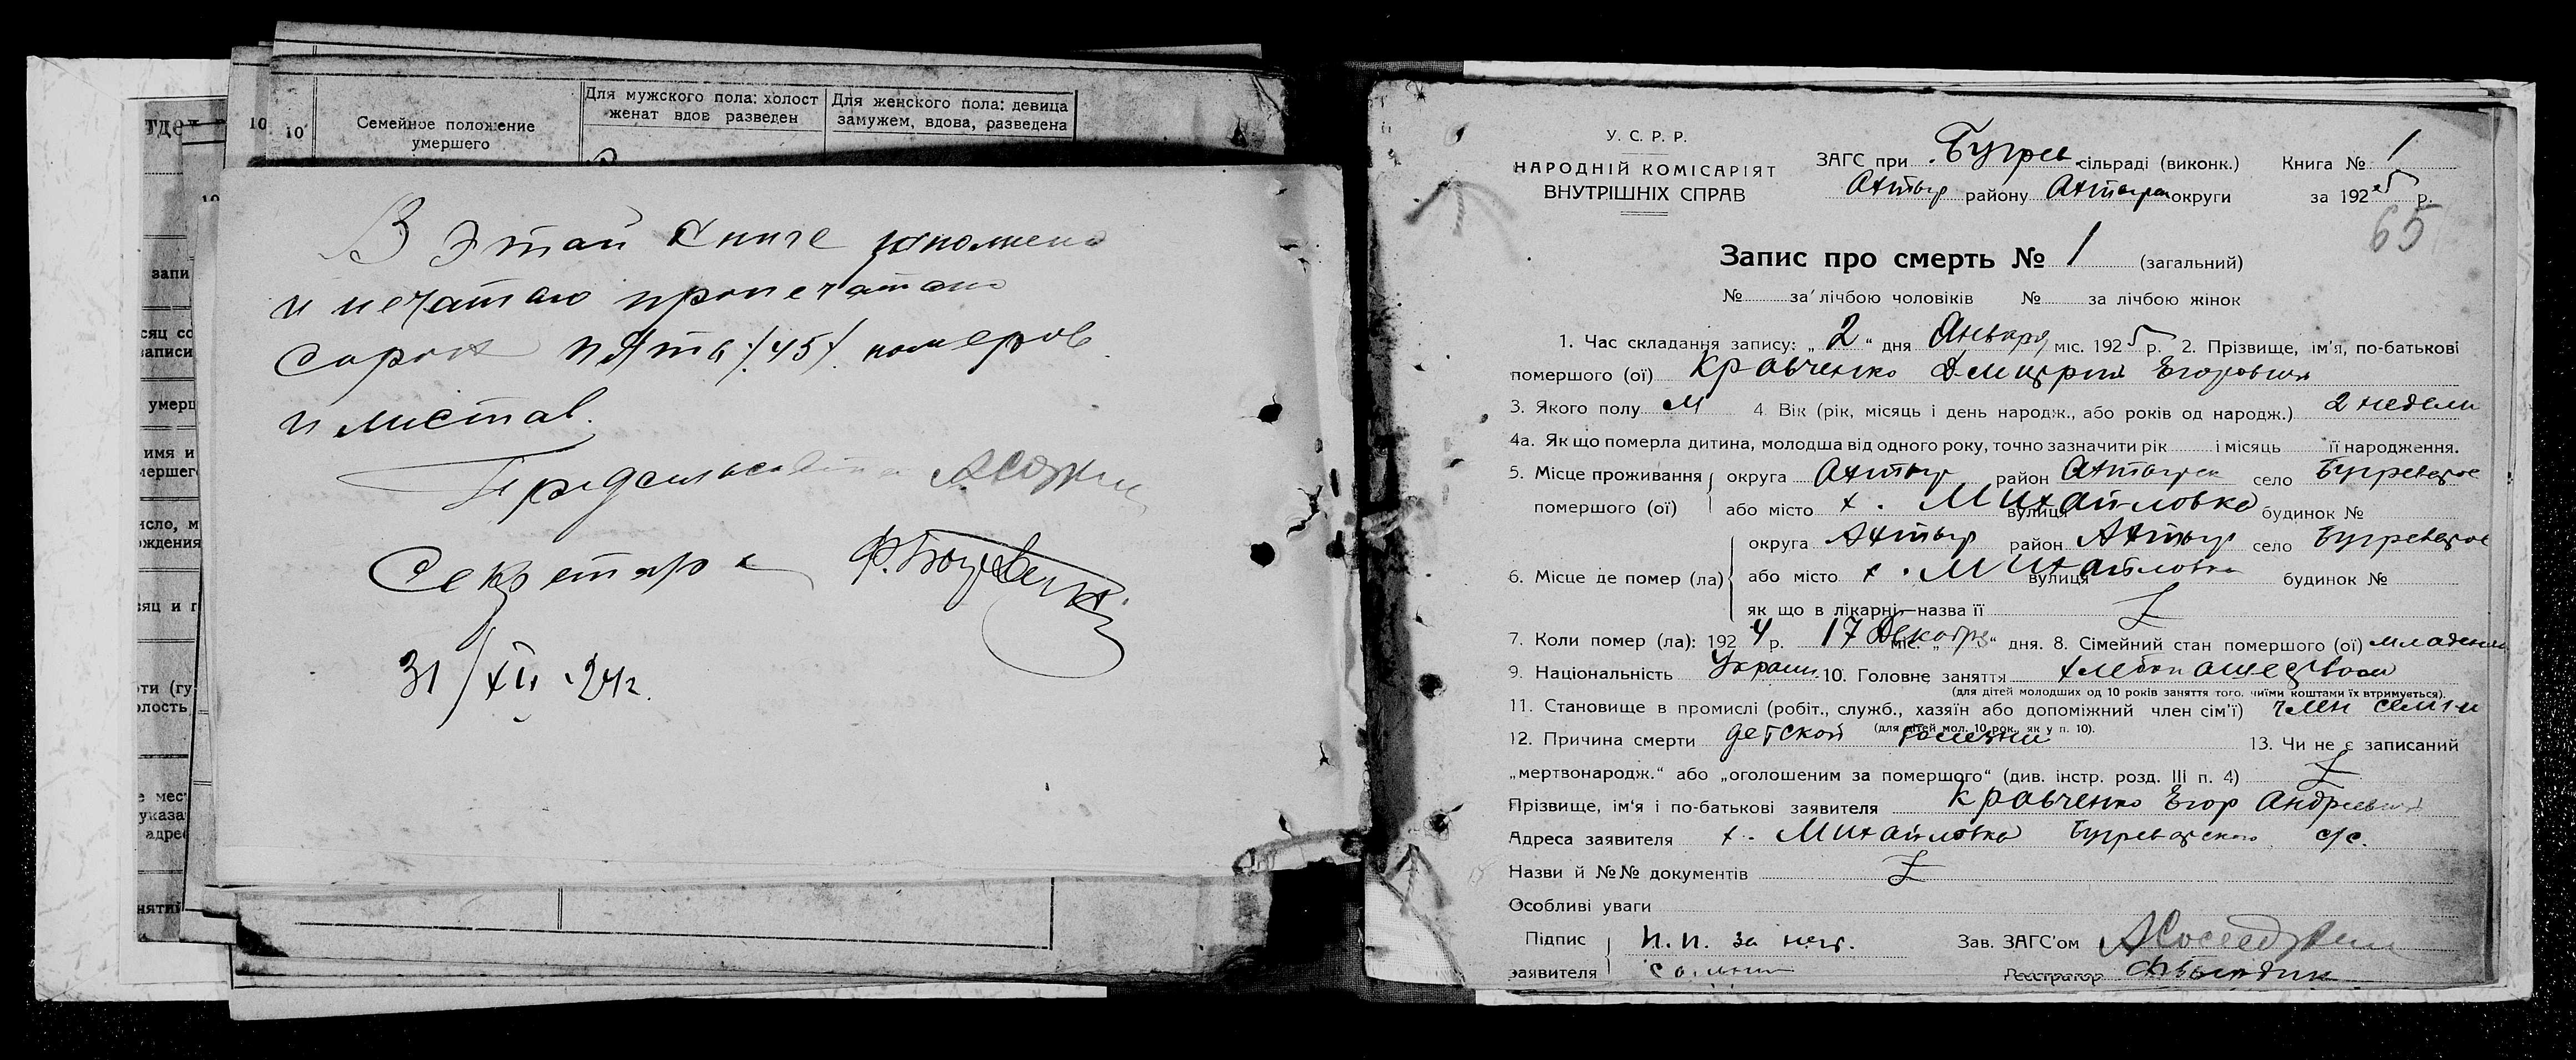 тде
10
10
10
Семейное положение
умершего
Для мужского пола: холост
женат вдов разведен
Для женского пола: девица
замужем, вдова, разведена
запи
сяц со
записи
умерш
имя и
мершег
исло, м
ождения
сяц и г
сти (гу
олость
е мест
указа
адрес
нятий
В этай книге
и печатаю пропечатано
сорок пять /45/ номеров
и листав.
Секретарь
31/XII 24г.
У. С. Р. Р.
НАРОДНІЙ КОМІСАРІЯТ
ВНУТРІШНІХ СПРАВ
ЗАГС при Бугрев. сільраді (виконк.) Книга № 1
Ахтыр району Ахтырск округи за 1925 р.
65
Запис про смерть № 1 (загальний)
№ за лічбою чоловіків № за лічбою жінок
1. Час складання запису: „2“ дня Января міс. 1925 р. 2. Прізвище, ім'я, по-батькові
помершого (ої) Кравченко Дмитрий Егорович
3. Якого полу М 4. Вік (рік, місяць і день народж., або років од народж.) 2 недели
4а. Як що померла дитина, молодша від одного року, точно зазначити рік і місяць її народження.
5. Місце проживання округа Ахтыр район Ахтырск село Бугреватое
помершого (ої) або місто х. Михайловка вулиця будинок №
округа Ахтыр район Ахтыр село Бугреватое
6. Місце де помер (ла) або місто х. Михайловка вулиця будинок №
як що в лікарні—назва її Z
7. Коли помер (ла): 1924 р. 17 Декабря міс. „ “ дня. 8. Сімейний стан помершого (ої) младенец
9. Національність Украин. 10. Головне заняття хлебопашеством
(для дітей молодших од 10 років заняття того, чиїми коштами їх втримується).
11. Становище в промислі (робіт., служб., хазяїн або допоміжний член сім'ї) член семьи
(для дітей мол. 10 рок., як у п. 10).
12. Причина смерти детской болезни 13. Чи не є записаний
„мертвонародж.“ або „оголошеним за помершого“ (див. інстр. розд. III п. 4) Z
Прізвище, ім'я і по-батькові заявителя Кравченко Егор Андреевич
Адреса заявителя х. Михайловка Бугреватского с/с.
Назви й №№ документів Z
Особливі уваги
Підпис
заявителя
Н. п. за нег.
Зав. ЗАГС'ом
Реєстратор